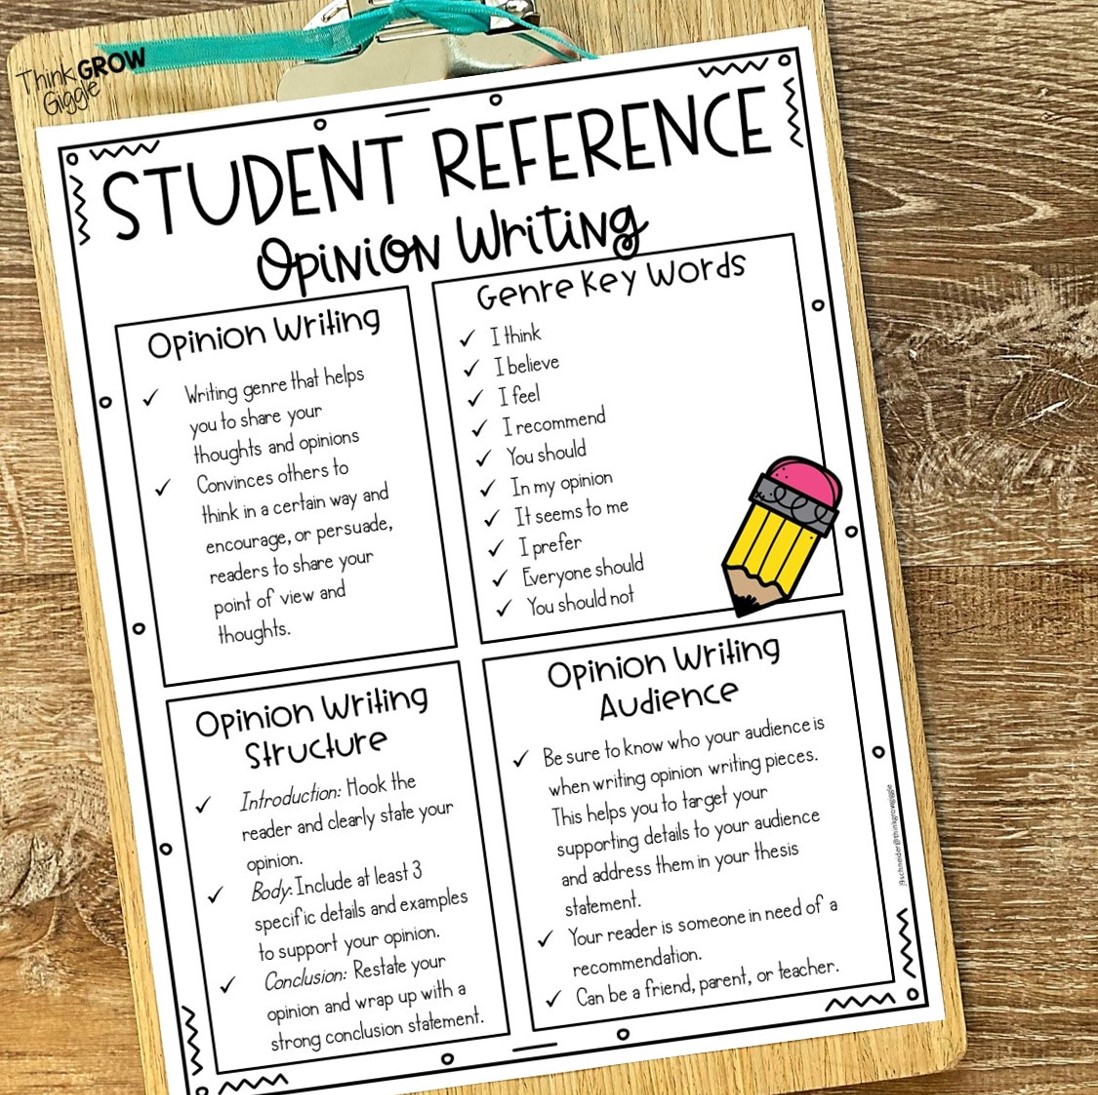 Think GROW
Giggle
STUDENT REFERENCE
Opinion Writing
Opinion Writing
✓ Writing genre that helps
you to share your
thoughts and opinions
✓ Convinces others to
think in a certain way and
encourage, or persuade,
readers to share your
point of view and
thoughts.
Genre Key Words
✓ I think
✓ I believe
✓ I feel
✓ I recommend
✓ You should
✓ In my opinion
✓ It seems to me
✓ I prefer
✓ Everyone should
✓ You should not
Opinion Writing
Structure
✓ Introduction: Hook the
reader and clearly state your
opinion.
✓ Body: Include at least 3
specific details and examples
to support your opinion.
✓ Conclusion: Restate your
opinion and wrap up with a
strong conclusion statement.
Opinion Writing
Audience
✓ Be sure to know who your audience is
when writing opinion writing pieces.
This helps you to target your
supporting details to your audience
and address them in your thesis
statement.
✓ Your reader is someone in need of a
recommendation.
✓ Can be a friend, parent, or teacher.